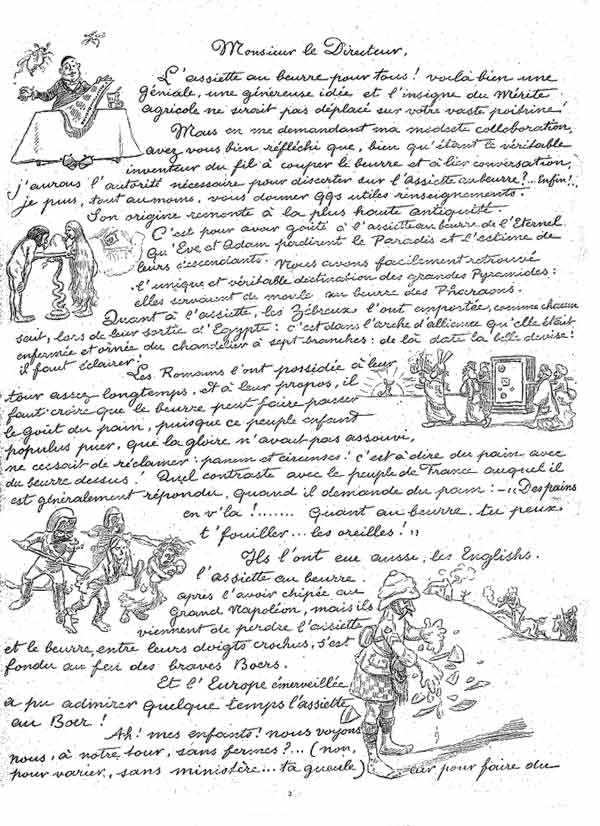 Monsieur le Directeur,
L'assiette au beurre pour tous! voilà bien une
géniale, une généreuse idée et l'insigne du Mérite
agricole ne serait pas déplacé sur votre vaste poitrine!
Mais en me demandant ma modeste collaboration,
avez vous bien réfléchi que, bien qu'étant le véritable
inventeur du fil à couper le beurre et à lier conversation,
j'aurais l'autorité nécessaire pour discerter sur l'Assiette au beurre?... Enfin!
je puis, tout au moins, vous donner qqs utiles renseignements.
Son origine remonte à la plus haute antiquité.
C'est pour avoir goûté à l'assiette au beurre de l'Eternel
Qu'Eve et Adam perdirent le Paradis et l'estime de
leurs descendants. Nous avons facilement retrouvé
l'unique et véritable destination des grandes Pyramides:
elles servaient de moule au beurre des Pharaons.
Quant à l'assiette, les Zébreux l'ont emportée, comme chacun
sait, lors de leur sortie d'Egypte: c'est dans l'arche d'alliance qu'elle était
enfermée et ornée du chandelier à sept branches: de là date la belle devise:
il faut éclairer!
Les Romains l'ont possédée à leur
tour assez longtemps, et à leur propos, il
faut croire que le beurre peut faire passer
le goût du pain, puisque ce peuple enfant
populus puer, que la gloire n'avait pas assouvi,
ne cessait de réclamer: panem et circenses! c'est à dire du pain avec
du beurre dessus! Quel contraste avec le peuple de France auquel il
est généralement répondu, quand il demande du pain: - "Des pains
en v'la!....... Quant au beurre, tu peux
t'fouiller... les oreilles!"
Ils l'ont eue aussi, les Englishs,
l'assiette au beurre
après l'avoir chipée au
Grand Napoléon, mais ils
viennent de perdre l'assiette
et le beurre, entre leurs doigts crochus, s'est
fondu au feu des braves Boers.
Et l'Europe émerveillée
a pu admirer quelque temps l'assiette
au Boer!
Ah! mes enfants! nous voyons
nous, à notre tour, sans fermes?... (non,
pour varier, sans ministère... ta gueule) car pour faire du
2